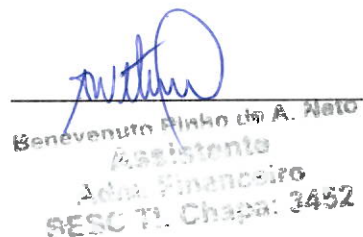 Benevenuto Pinho de A. Neto
Assistente
Adm. Financeiro
SESC TL Chapa: 3452